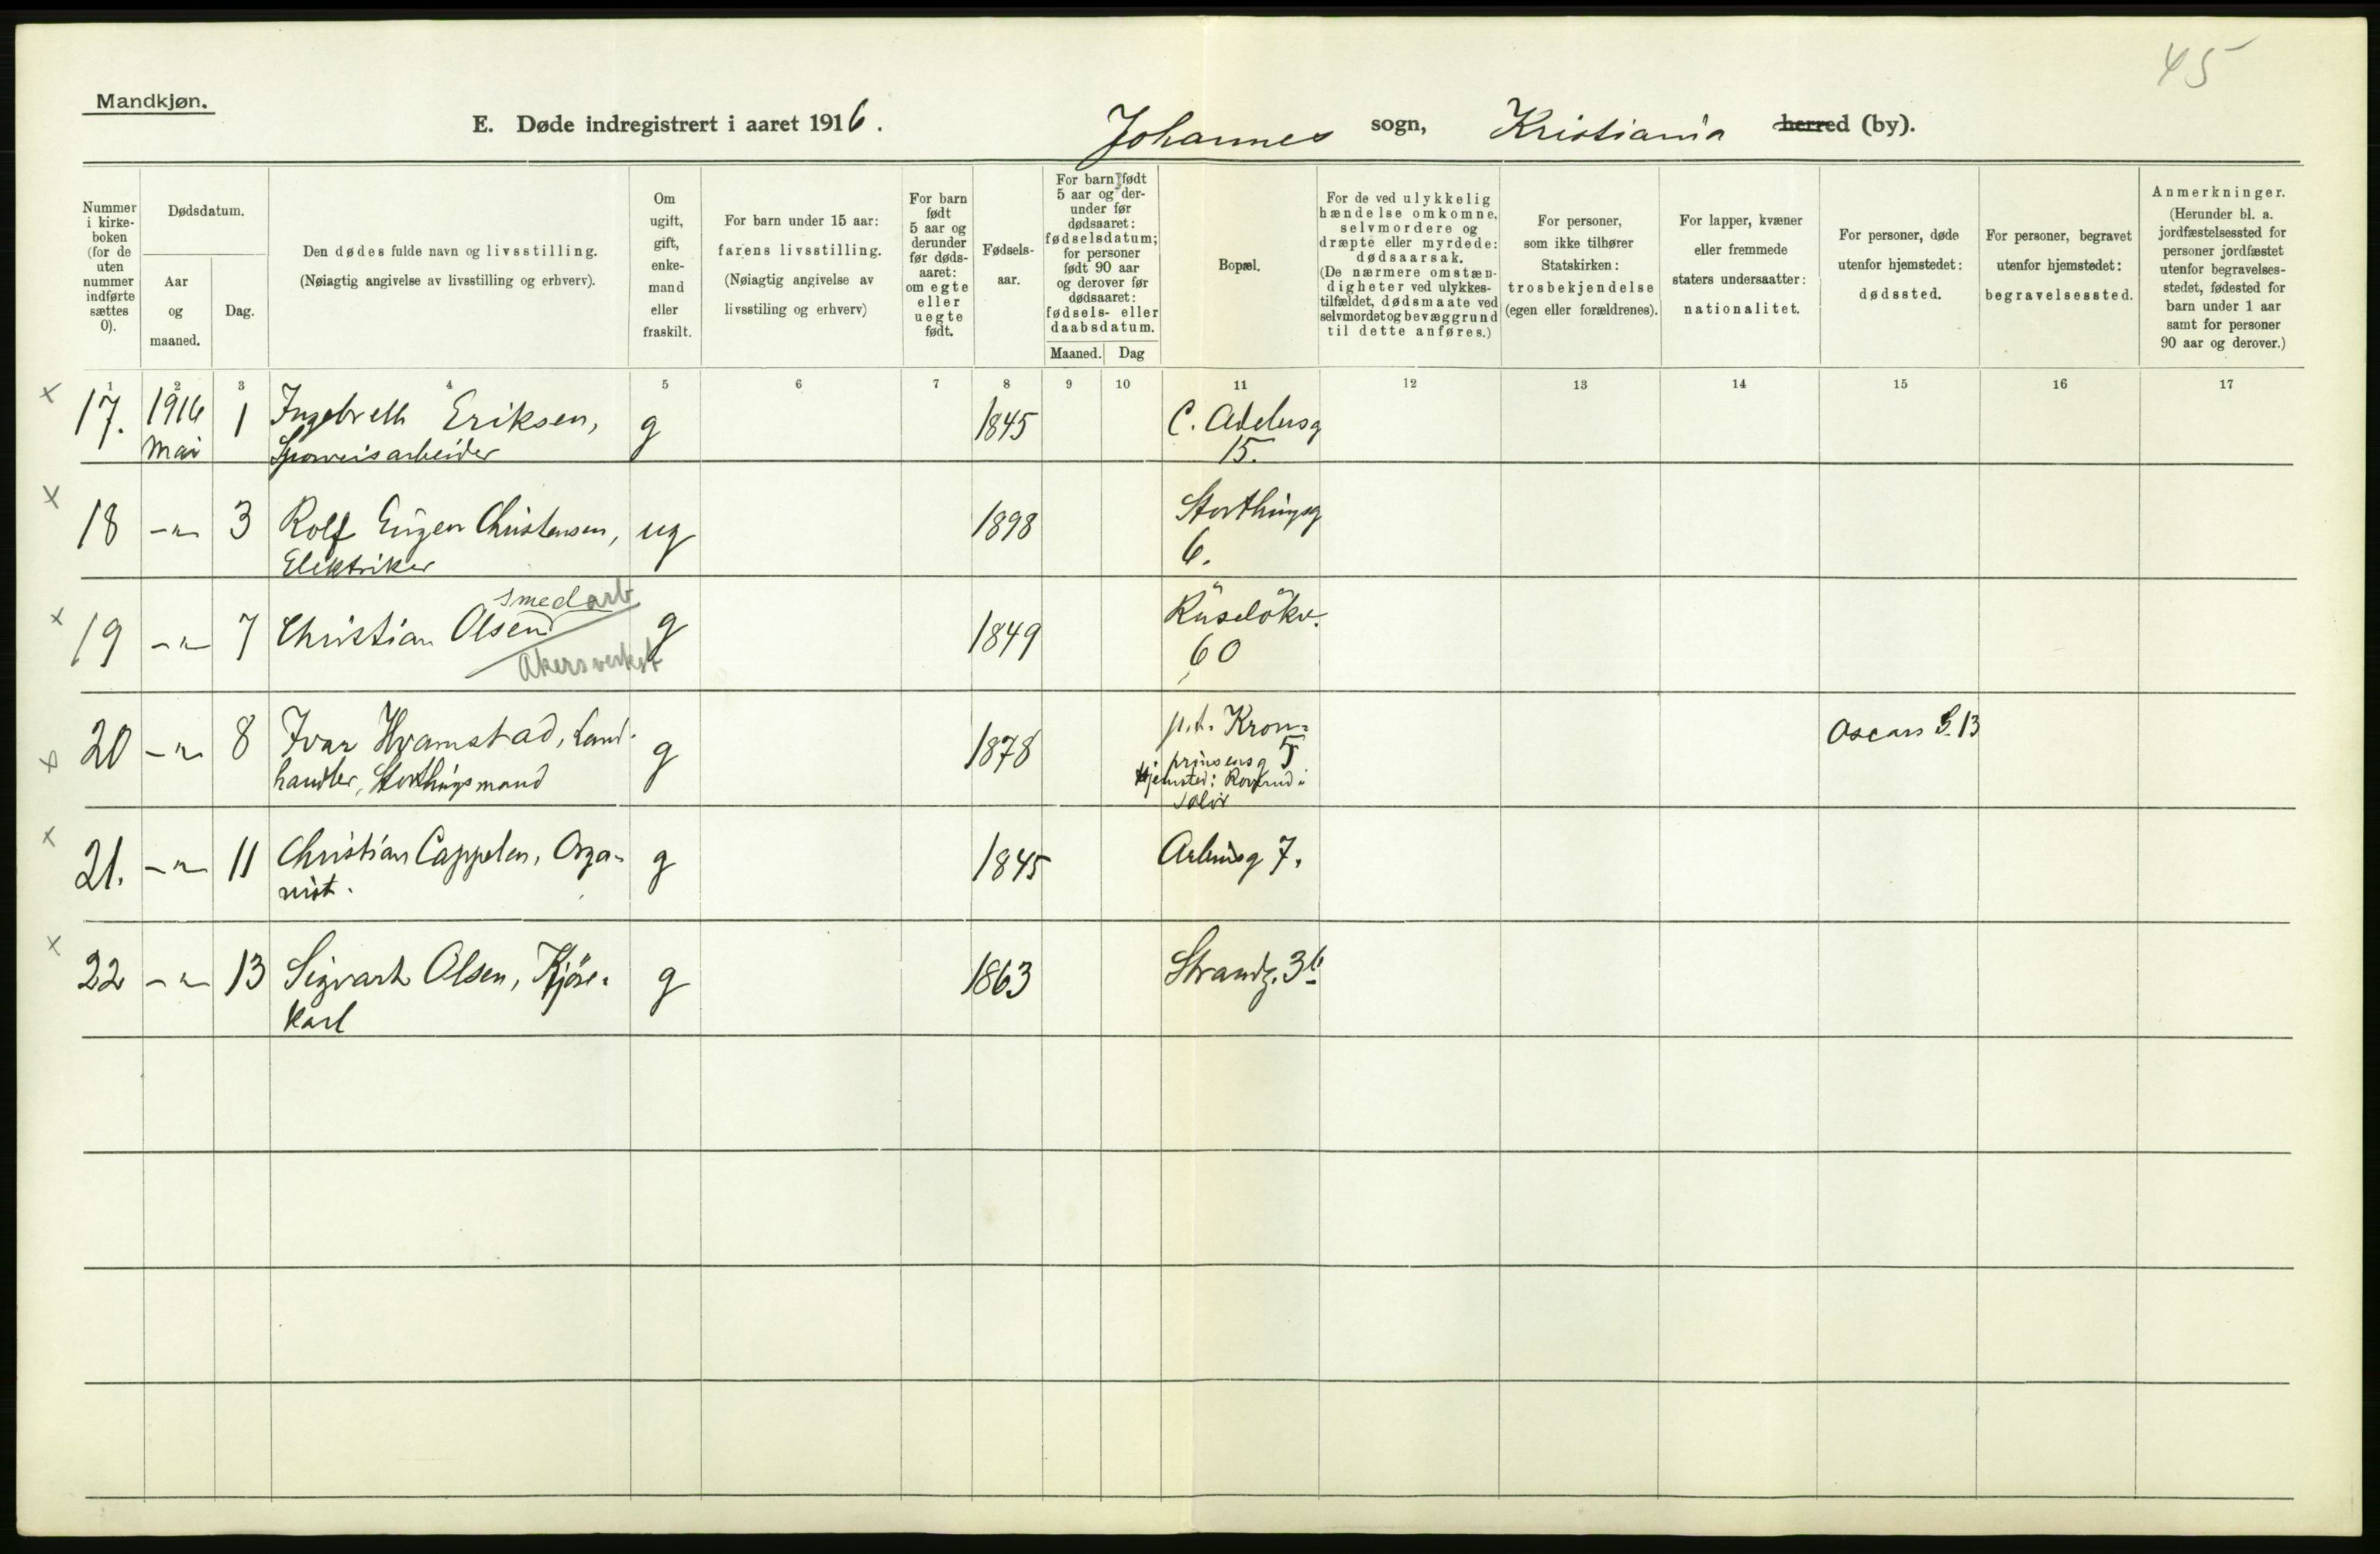 45
Mandkjøn.
E. Døde indregistrert i aaret 1916. Johannes sogn, Kristiania herred (by).
Nummer i kirke-boken (for de uten nummer indførte sættes 0).
Dødsdatum.
Aar og maaned.
Dag.
Den dødes fulde navn og livsstilling.
(Nøiagtig angivelse av livsstilling og erhverv).
Om ugift, gift, enke-mand eller fraskilt.
For barn under 15 aar: farens livsstilling.
(Nøiagtig angivelse av livsstiling og erhverv)
For barn født 5 aar og derunder før døds-aaret: om egte eller uegte født.
Fødsels-aar.
For barn født 5 aar og der-under før dødsaaret: fødselsdatum; for personer født 90 aar og derover før dødsaaret: fødsels- eller daabsdatum.
Maaned. Dag
Bopæl.
For de ved ulykkelig hændelse omkomne, selvmordere og dræpte eller myrdede: dødsaarsak.
(De nærmere omstæn-digheter ved ulykkes-tilfældet, dødsmaate ved selvmordet og bevæggrund til dette anføres.)
For personer, som ikke tilhører Statskirken: trosbekjendelse (egen eller forældrenes).
For lapper, kvæner eller fremmede staters undersaatter: nationalitet.
For personer, døde utenfor hjemstedet: dødssted.
For personer, begravet utenfor hjemstedet: begravelsessted.
Anmerkninger.
(Herunder bl. a. jordfæstelsessted for personer jordfæstet utenfor begravelses-stedet, fødested for barn under 1 aar samt for personer 90 aar og derover.)
1 2 3 4 5 6 7 8 9 10 11 12 13 14 15 16 17
x 17. 1916 Mai 1 Ingebreth Eriksen, g 1845 C. Adelersg
Sporveisarbeider 15.
x 18 -"- 3 Rolf Eugen Christensen, ug 1898 Storthingsg
Elektriker 6.
smedarb
x 19 -"- 7 Christian Olsen g 1849 Ruseløkv.
Akersverkst 60
x 20 -"- 8 Ivar Hvamstad, Land- g 1878 p.t. Kron- Oscars G. 13
handler, Storthingsmand prinsensg 5
Hjemsted: i
Solør
x 21. -"- 11 Christian Cappelen, Orga- g 1845 Arbinsg 7.
nist.
x 22 -"- 13 Sigvart Olsen, Kjøre- g 1863 Strandg. 3b
karl